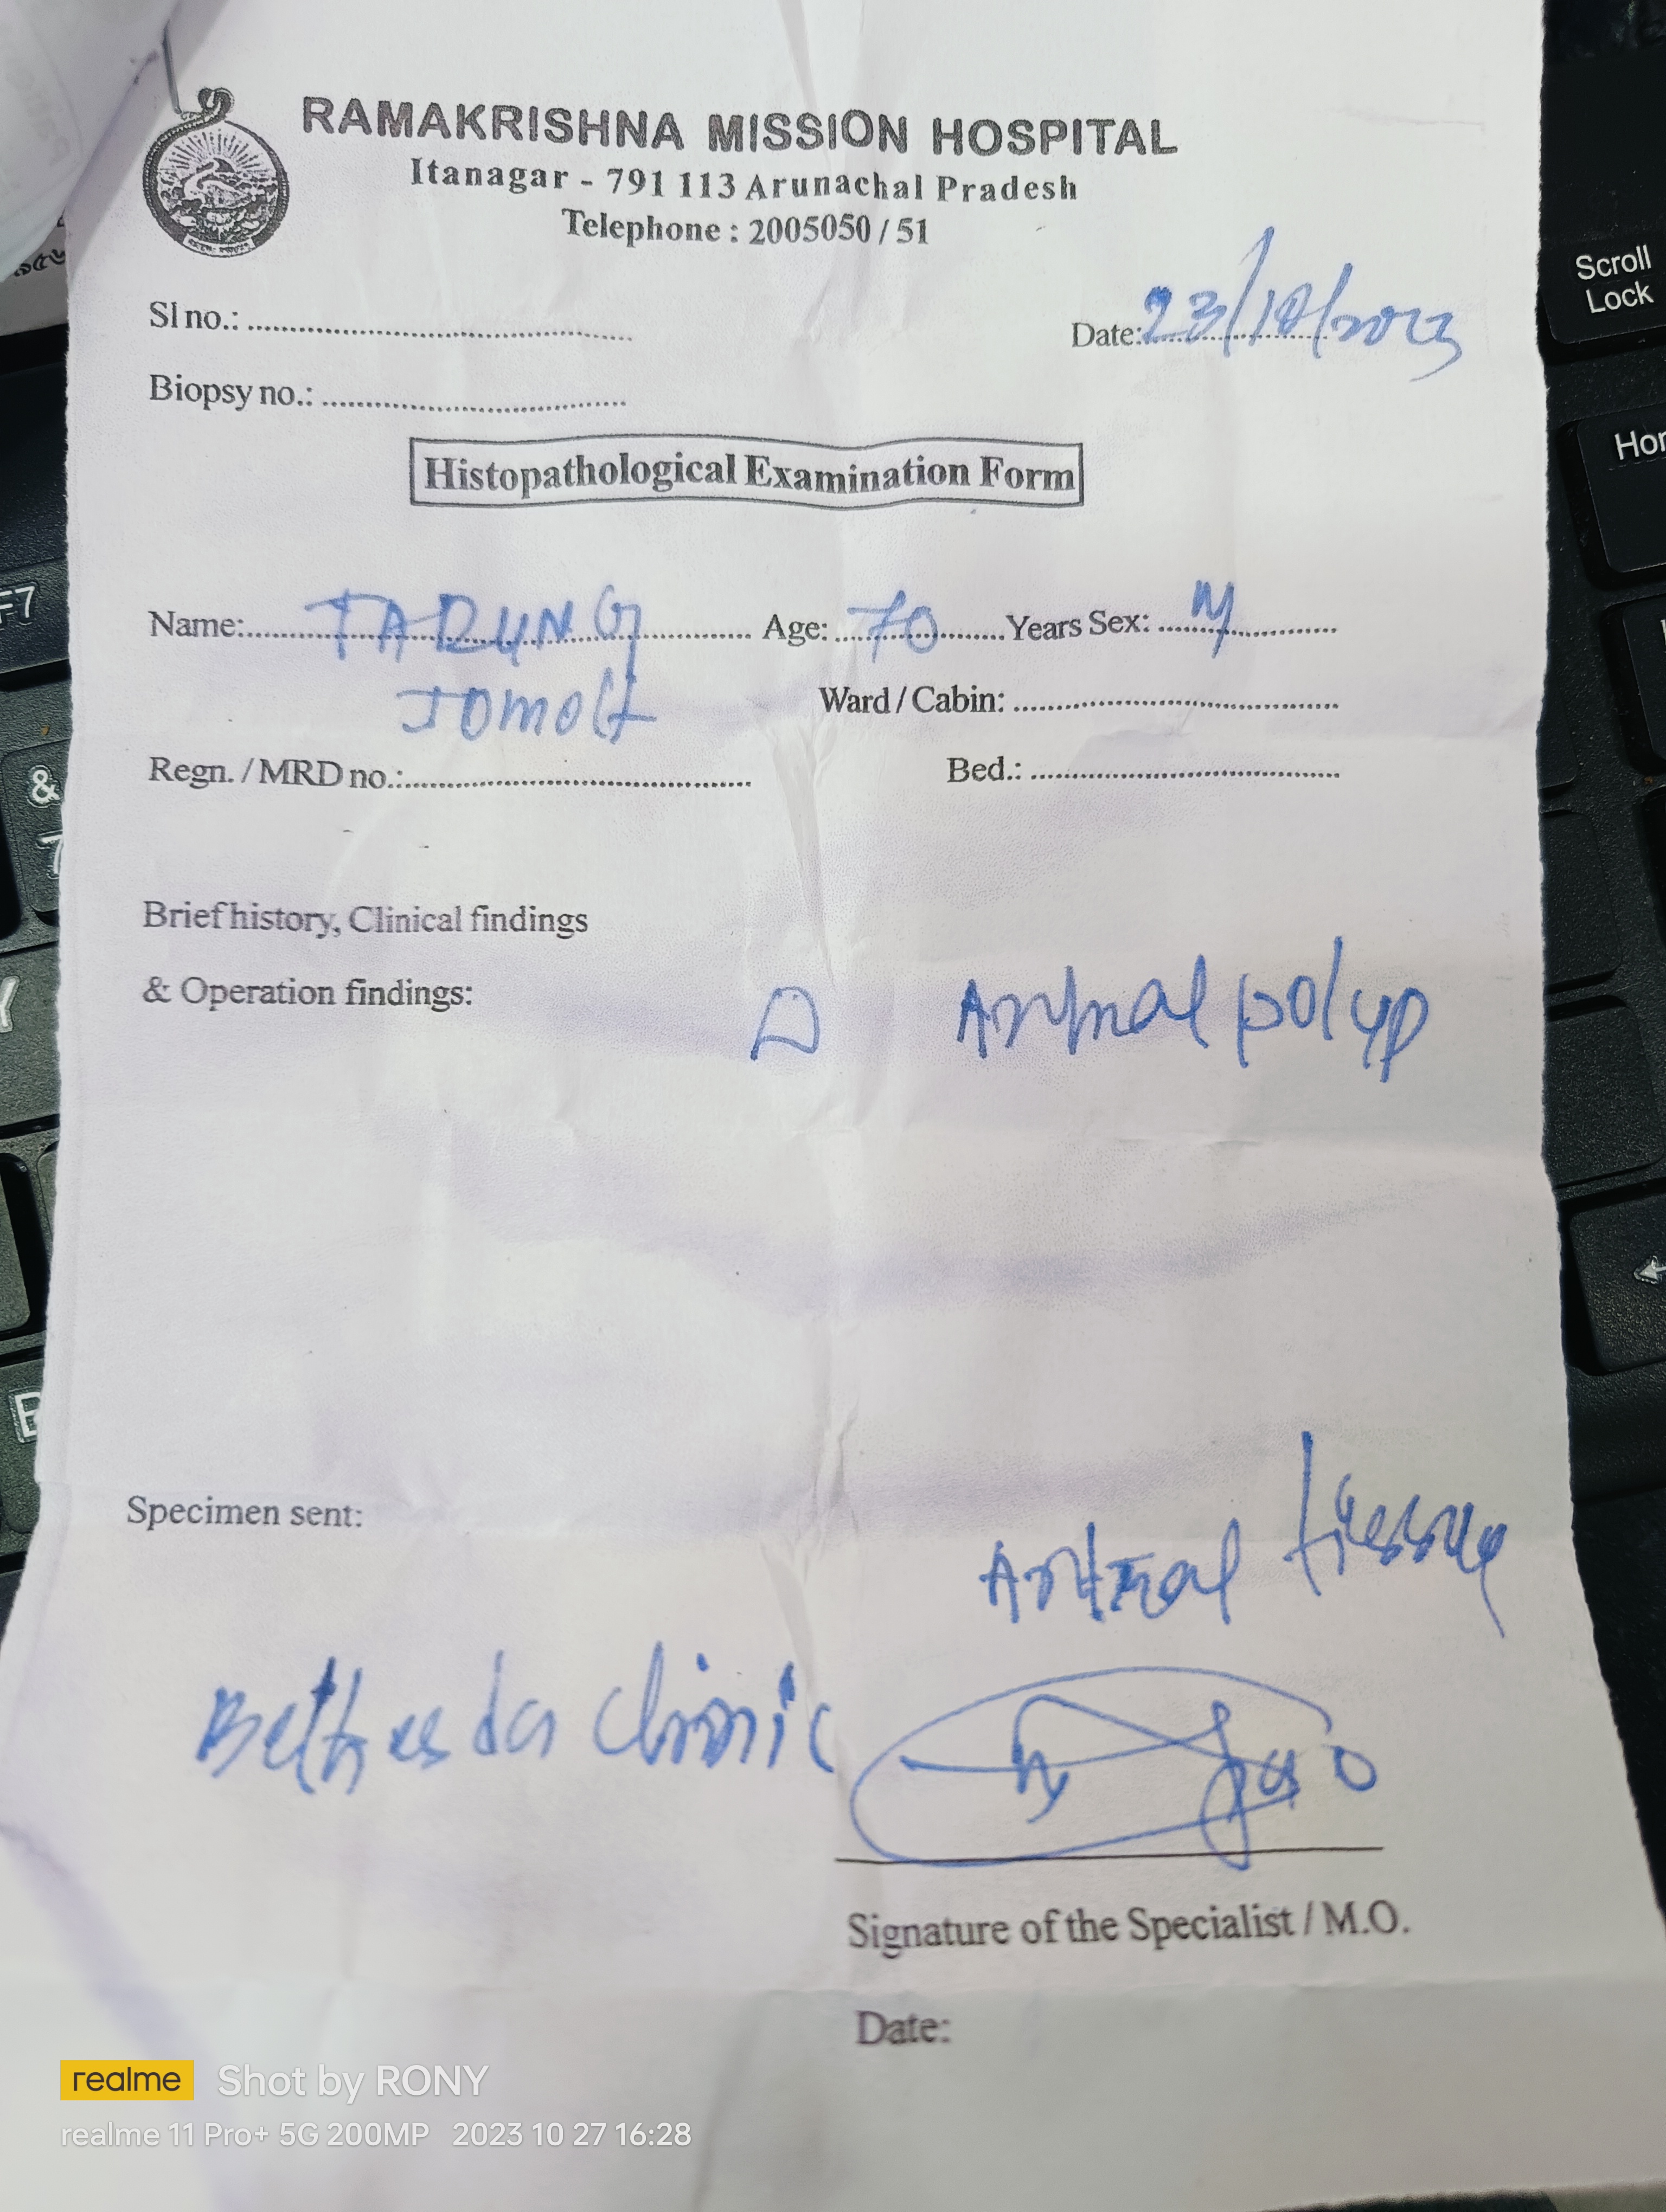 RAMAKRISHNA MISSION HOSPITAL
Itanagar - 791 113 Arunachal Pradesh
Telephone : 2005050 / 51
Sl no.: ............ Date: 23/10/2023
Biopsy no.: ............
Histopathological Examination Form
Name: TARUNG Age: 70 Years Sex: M
JOMOH Ward / Cabin: ............
Regn. / MRD no.: ............ Bed.: ............
Brief history, Clinical findings
& Operation findings: Antral polyp
Specimen sent: Antral tissue
Bethesda clinic
Signature of the Specialist / M.O.
Date:
realme Shot by RONY
realme 11 Pro+ 5G 200MP 2023 10 27 16:28
Scroll
Lock
F7
&
7